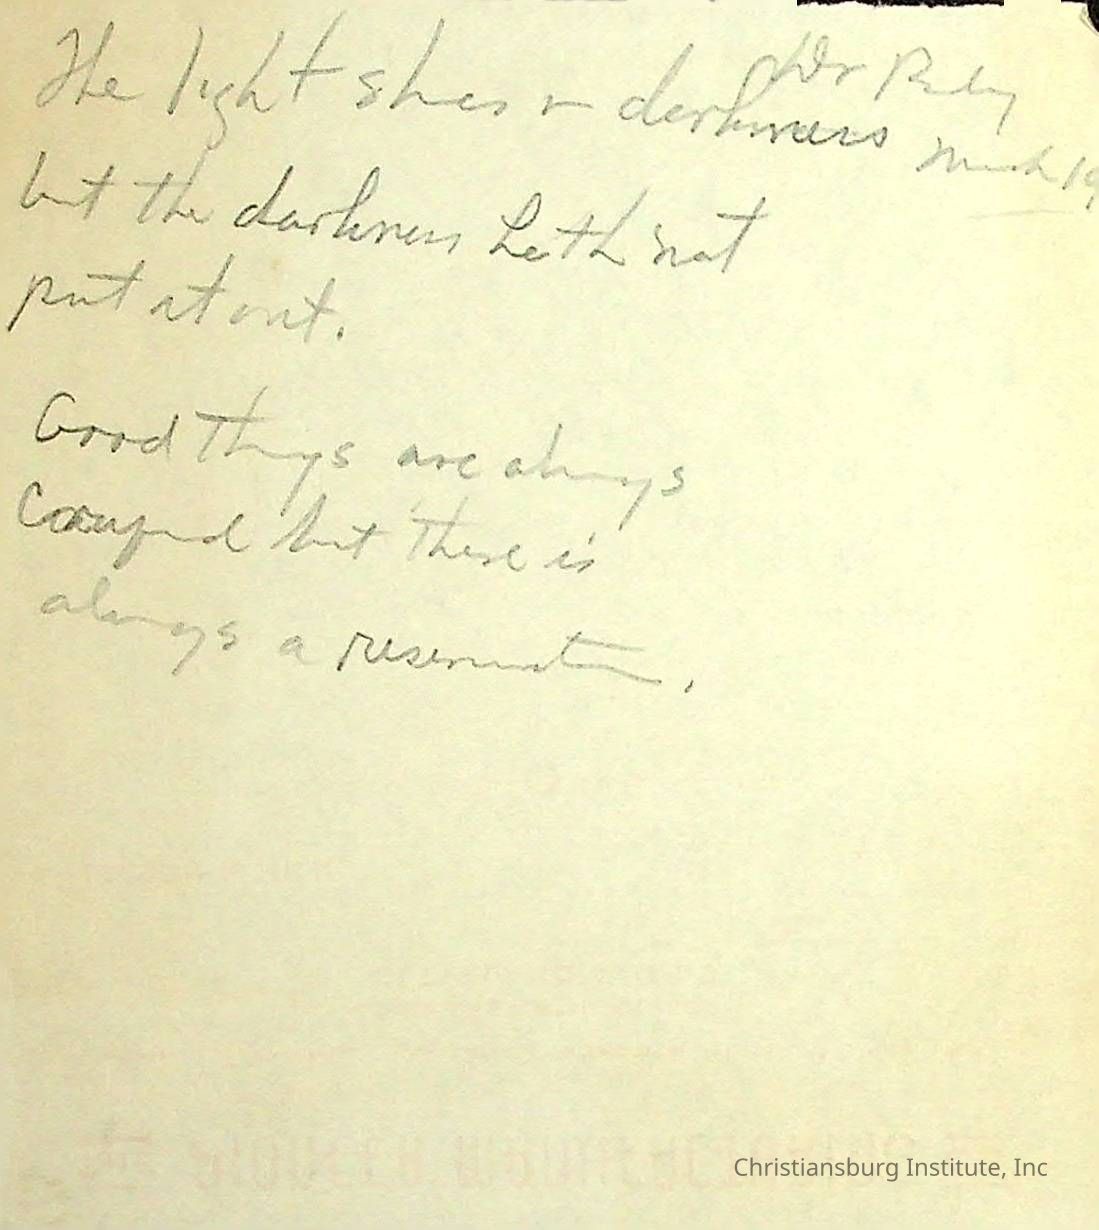 The light shines in darkness
Dr
March 19
but the darkness hath not
put it out.
Good things are always
but there is
always a reservation.
Christiansburg Institute, Inc